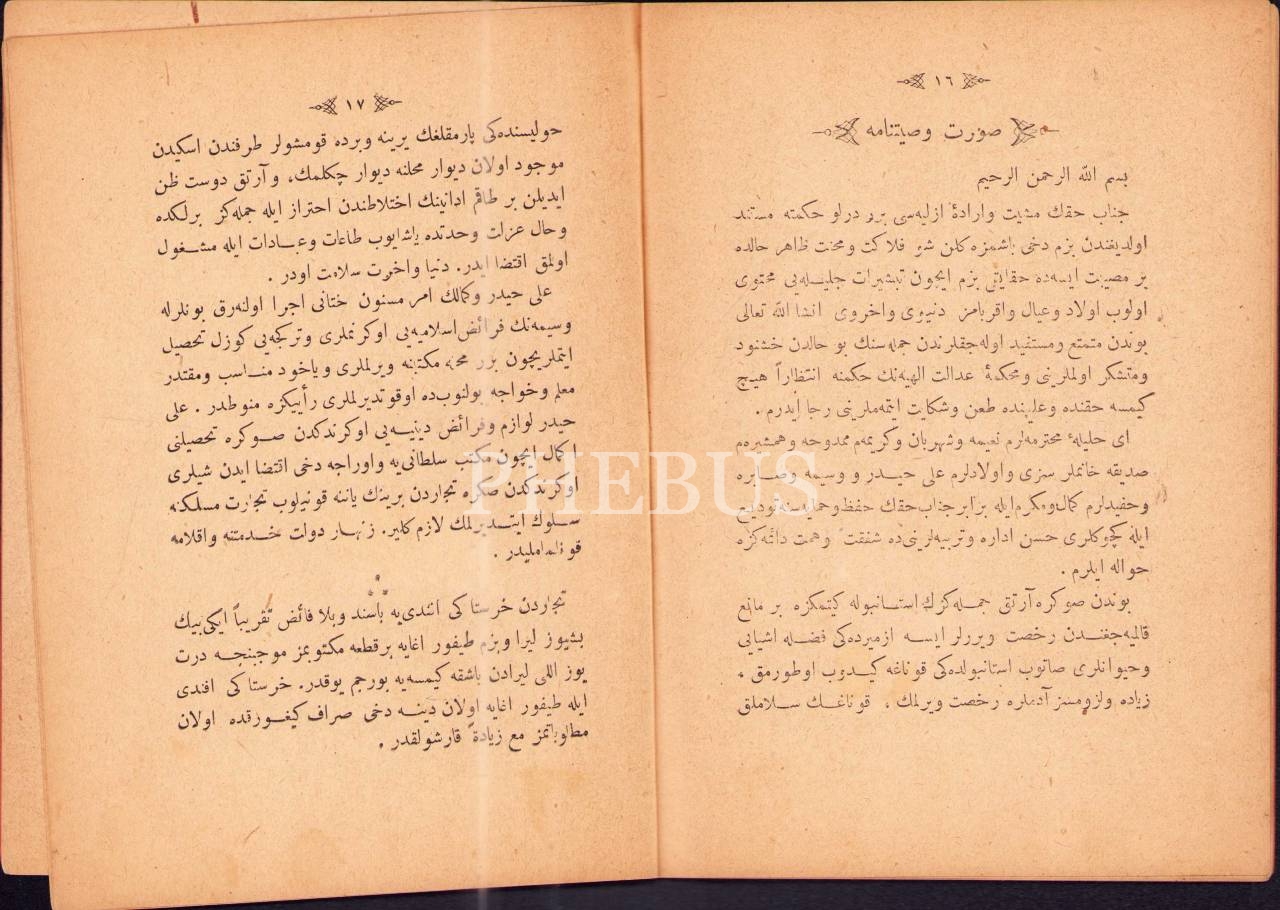 ١٦
صورت وصيتنامه
بسم الله الرحمن الرحيم
جناب حقك مشيت وارادۀ ازليه‌سى بر درلو حكمته مستند
اولديغندن بزم دخى باشمزه كلن شو فلاكت ومحنت ظاهر حالده
بر مصيبت ايسه‌ده حقايقى بزم ايچون تبشيرات جليله‌يى محتوى
اولوب اولاد وعيال واقربامز دنيوى واخروى انشا الله تعالى
بوندن متمتع ومستفيد اوله‌جقلرندن جمله‌سنك بو حالدن خشنود
ومتشكر اولملرينى ومحكمۀ عدالت الهيه‌نك حكمنه انتظاراً هيچ
كيمسه حقنده وعليهنده طعن وشكايت ايتمه‌ملرينى رجا ايدرم .
اى حليلۀ محترمه‌لرم نعيمه وشهربان وكريمه‌م ممدوحه وهمشيره‌م
صديقه خانملر سزى واولادلرم على حيدر و وسيمه وصابره
وحفيدلرم كمال ومكرم ايله برابر جناب حقك حفظ وحمايه‌سنه توديع
ايله كوچوكلرى حسن اداره وتربيه‌لرينى‌ده شفقت وهمت دائمه‌كزه
حواله ايلرم .
بوندن صوكره آرتق جمله‌كزك استانبوله كيتمكزه بر مانع
قالميه‌جغندن رخصت ويررلر ايسه ازميرده‌كى فضله اشيايى
وحيوانلرى صاتوب استانبولده‌كى قوناغه كيدوب اوطورمق ،
زياده ولزومسز آدملره رخصت ويرلمك ، قوناغك سلاملق
١٧
حوليسنده‌كى پارمقلغك يرينه وبرده قومشولر طرفندن اسكيدن
موجود اولان ديوار محلنه ديوار چكلمك، وآرتق دوست ظن
ايديلن بر طاقم ادانينك اختلاطندن احتراز ايله جمله‌كز برلكده
وحال عزلت وحدتده ياشايوب طاعات وعبادات ايله مشغول
اولمق اقتضا ايدر. دنيا واخرت سلامت اودر .
على حيدر وكمالك امر مسنون ختانى اجرا اولنه‌رق بونلرله
وسيمه‌نك فرائض اسلاميه‌يى اوكرنملرى وتركجه‌يى كوزل تحصيل
ايتملريچون برر محله مكتبنه ويرلملرى وياخود مناسب ومقتدر
معلم وخواجه بولنوب‌ده اوقوتديرلملرى رأييكزه منوطدر . على
حيدر لوازم وفرائض دينيه‌يى اوكرندكدن صوكره تحصيلنى
اكمال ايچون مكتب سلطانى‌يه واوراجه دخى اقتضا ايدن شيلرى
اوكرندكدن صكره تجاردن برينك ياننه قونيلوب تجارت مسلكنه
سلوك ايتديرلمك لازم كلير. زنهار دولت خدمتنه واقلامه
قونلماملیدر .
تجاردن خرستاكى افندى‌يه باسند وبلا فائض تقريباً ايكى بيك
بشيوز ليرا وبزم طيفور اغايه برقطعه مكتوبمز موجبنجه درت
يوز اللى ليرادن باشقه كيمسه‌يه بورجم يوقدر. خرستاكى افندى
ايله طيفور اغايه اولان دينه دخى صراف كيغورقده اولان
مطلوباتمز مع زيادة قارشولقدر .
PHEBUS